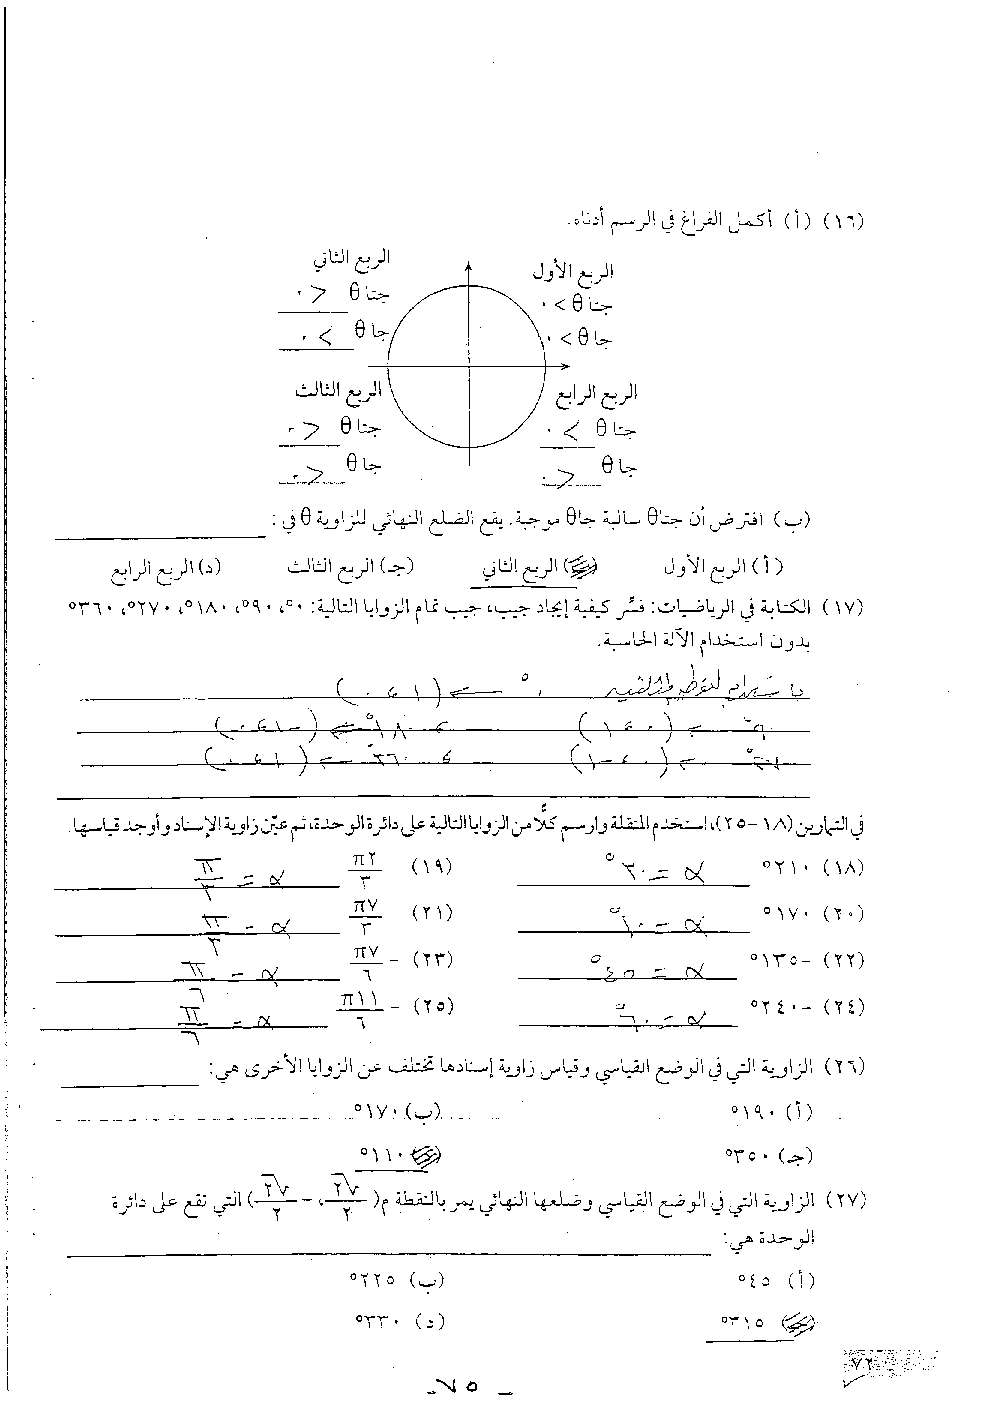 (١٦) (أ) أكمل الفراغ في الرسم أدناه.
الربع الأول
جتا θ > ٠
جا θ > ٠
الربع الثاني
جتا θ < ٠
جا θ > ٠
الربع الرابع
جتا θ > ٠
جا θ < ٠
الربع الثالث
جتا θ < ٠
جا θ < ٠
(ب) افترض أن جتاθ سالبة جاθ موجبة. يقع الضلع النهائي للزاوية θ في:
(أ) الربع الأول (ب) الربع الثاني (جـ) الربع الثالث (د) الربع الرابع
(١٧) الكتابة في الرياضيات: فسِّر كيفية إيجاد جيب، جيب تمام الزوايا التالية: ٠°، ٩٠°، ١٨٠°، ٢٧٠°، ٣٦٠°
بدون استخدام الآلة الحاسبة.
باستخدام النقطة المثلثية ٠° ← (١، ٠)
٩٠° ← (٠، ١) ، ١٨٠° ← (-١، ٠)
٢٧٠° ← (٠، -١) ، ٣٦٠° ← (١، ٠)
في التمارين (١٨-٢٥)، استخدم المنقلة وارسم كلًّا من الزوايا التالية على دائرة الوحدة، ثم عيّن زاوية الإسناد وأوجد قياسها.
(١٨) ٢١٠° α = ٣٠° (١٩) ٢π/٣ α = π/٣
(٢٠) ١٧٠° α = ١٠° (٢١) ٧π/٣ α = π/٣
(٢٢) -١٣٥° α = ٤٥° (٢٣) -٧π/٦ α = π/٦
(٢٤) -٢٤٠° α = ٦٠° (٢٥) -١١π/٦ α = π/٦
(٢٦) الزاوية التي في الوضع القياسي وقياس زاوية إسنادها تختلف عن الزوايا الأخرى هي:
(أ) ١٩٠° (ب) ١٧٠°
(جـ) ٣٥٠° ١١٠°
(٢٧) الزاوية التي في الوضع القياسي وضلعها النهائي يمر بالنقطة م(√٢/٢، -√٢/٢) التي تقع على دائرة
الوحدة هي:
(أ) ٤٥° (ب) ٢٢٥°
٣١٥° (د) ٣٣٠°
٧٢
- ٧٥ -